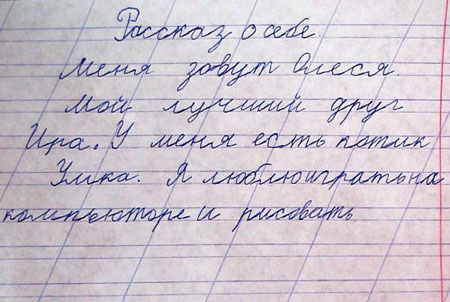 Рассказ о себе.
Меня зовут Олеся.
Мой лучший друг
Ира. У меня есть котик
Умка. Я люблюигратьна
компьюторе и рисовать